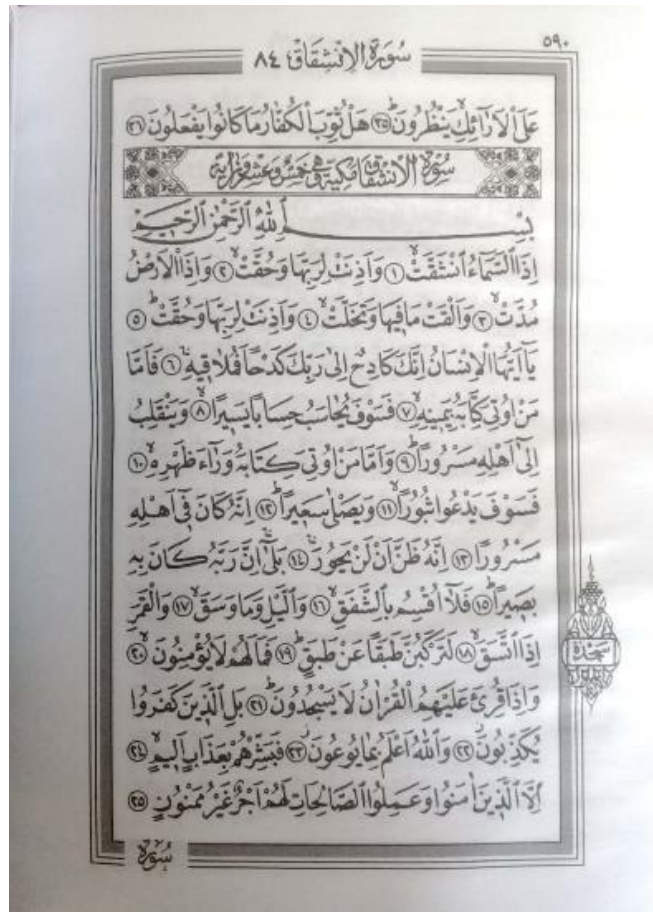 ٥٩٠
سُورَةُ الْاِنْشِقَاقِ ٨٤
عَلَى الْاَرَٓائِكِۙ يَنْظُرُونَۜ ﴿٣٥﴾ هَلْ ثُوِّبَ الْكُفَّارُ مَا كَانُوا يَفْعَلُونَ ﴿٣٦﴾
سُورَةُ الْاِنْشِقَاقِ مَكِّيَّةٌ وَهِيَ خَمْسٌ وَعِشْرُونَ اٰيَةً
بِسْمِ اللّٰهِ الرَّحْمٰنِ الرَّحٖيمِ
اِذَا السَّمَٓاءُ انْشَقَّتْۙ ﴿١﴾ وَاَذِنَتْ لِرَبِّهَا وَحُقَّتْۙ ﴿٢﴾ وَاِذَا الْاَرْضُ
مُدَّتْۙ ﴿٣﴾ وَاَلْقَتْ مَا فٖيهَا وَتَخَلَّتْۙ ﴿٤﴾ وَاَذِنَتْ لِرَبِّهَا وَحُقَّتْۜ ﴿٥﴾
يَٓا اَيُّهَا الْاِنْسَانُ اِنَّكَ كَادِحٌ اِلٰى رَبِّكَ كَدْحًا فَمُلَاقٖيهِۚ ﴿٦﴾ فَاَمَّا
مَنْ اُو۫تِيَ كِتَابَهُ بِيَمٖينِهٖۙ ﴿٧﴾ فَسَوْفَ يُحَاسَبُ حِسَابًا يَسٖيرًاۙ ﴿٨﴾ وَيَنْقَلِبُ
اِلٰٓى اَهْلِهٖ مَسْرُورًاۜ ﴿٩﴾ وَاَمَّا مَنْ اُو۫تِيَ كِتَابَهُ وَرَٓاءَ ظَهْرِهٖۙ ﴿١٠﴾
فَسَوْفَ يَدْعُوا ثُبُورًاۙ ﴿١١﴾ وَيَصْلٰى سَعٖيرًاۜ ﴿١٢﴾ اِنَّهُ كَانَ فٖٓي اَهْلِهٖ
مَسْرُورًاۜ ﴿١٣﴾ اِنَّهُ ظَنَّ اَنْ لَنْ يَحُورَۚۛ ﴿١٤﴾ بَلٰىۚۛ اِنَّ رَبَّهُ كَانَ بِهٖ
بَصٖيرًاۜ ﴿١٥﴾ فَلَٓا اُقْسِمُ بِالشَّفَقِۙ ﴿١٦﴾ وَالَّيْلِ وَمَا وَسَقَۙ ﴿١٧﴾ وَالْقَمَرِ
اِذَا اتَّسَقَۙ ﴿١٨﴾ لَتَرْكَبُنَّ طَبَقًا عَنْ طَبَقٍۜ ﴿١٩﴾ فَمَا لَهُمْ لَا يُؤْمِنُونَۙ ﴿٢٠﴾
وَاِذَا قُرِئَ عَلَيْهِمُ الْقُرْاٰنُ لَا يَسْجُدُونَۜ ﴿٢١﴾ بَلِ الَّذٖينَ كَفَرُوا
يُكَذِّبُونَۘ ﴿٢٢﴾ وَاللّٰهُ اَعْلَمُ بِمَا يُوعُونَۘ ﴿٢٣﴾ فَبَشِّرْهُمْ بِعَذَابٍ اَلٖيمٍۙ ﴿٢٤﴾
اِلَّا الَّذٖينَ اٰمَنُوا وَعَمِلُوا الصَّالِحَاتِ لَهُمْ اَجْرٌ غَيْرُ مَمْنُونٍ ﴿٢٥﴾
سجدة
سُورَةُ